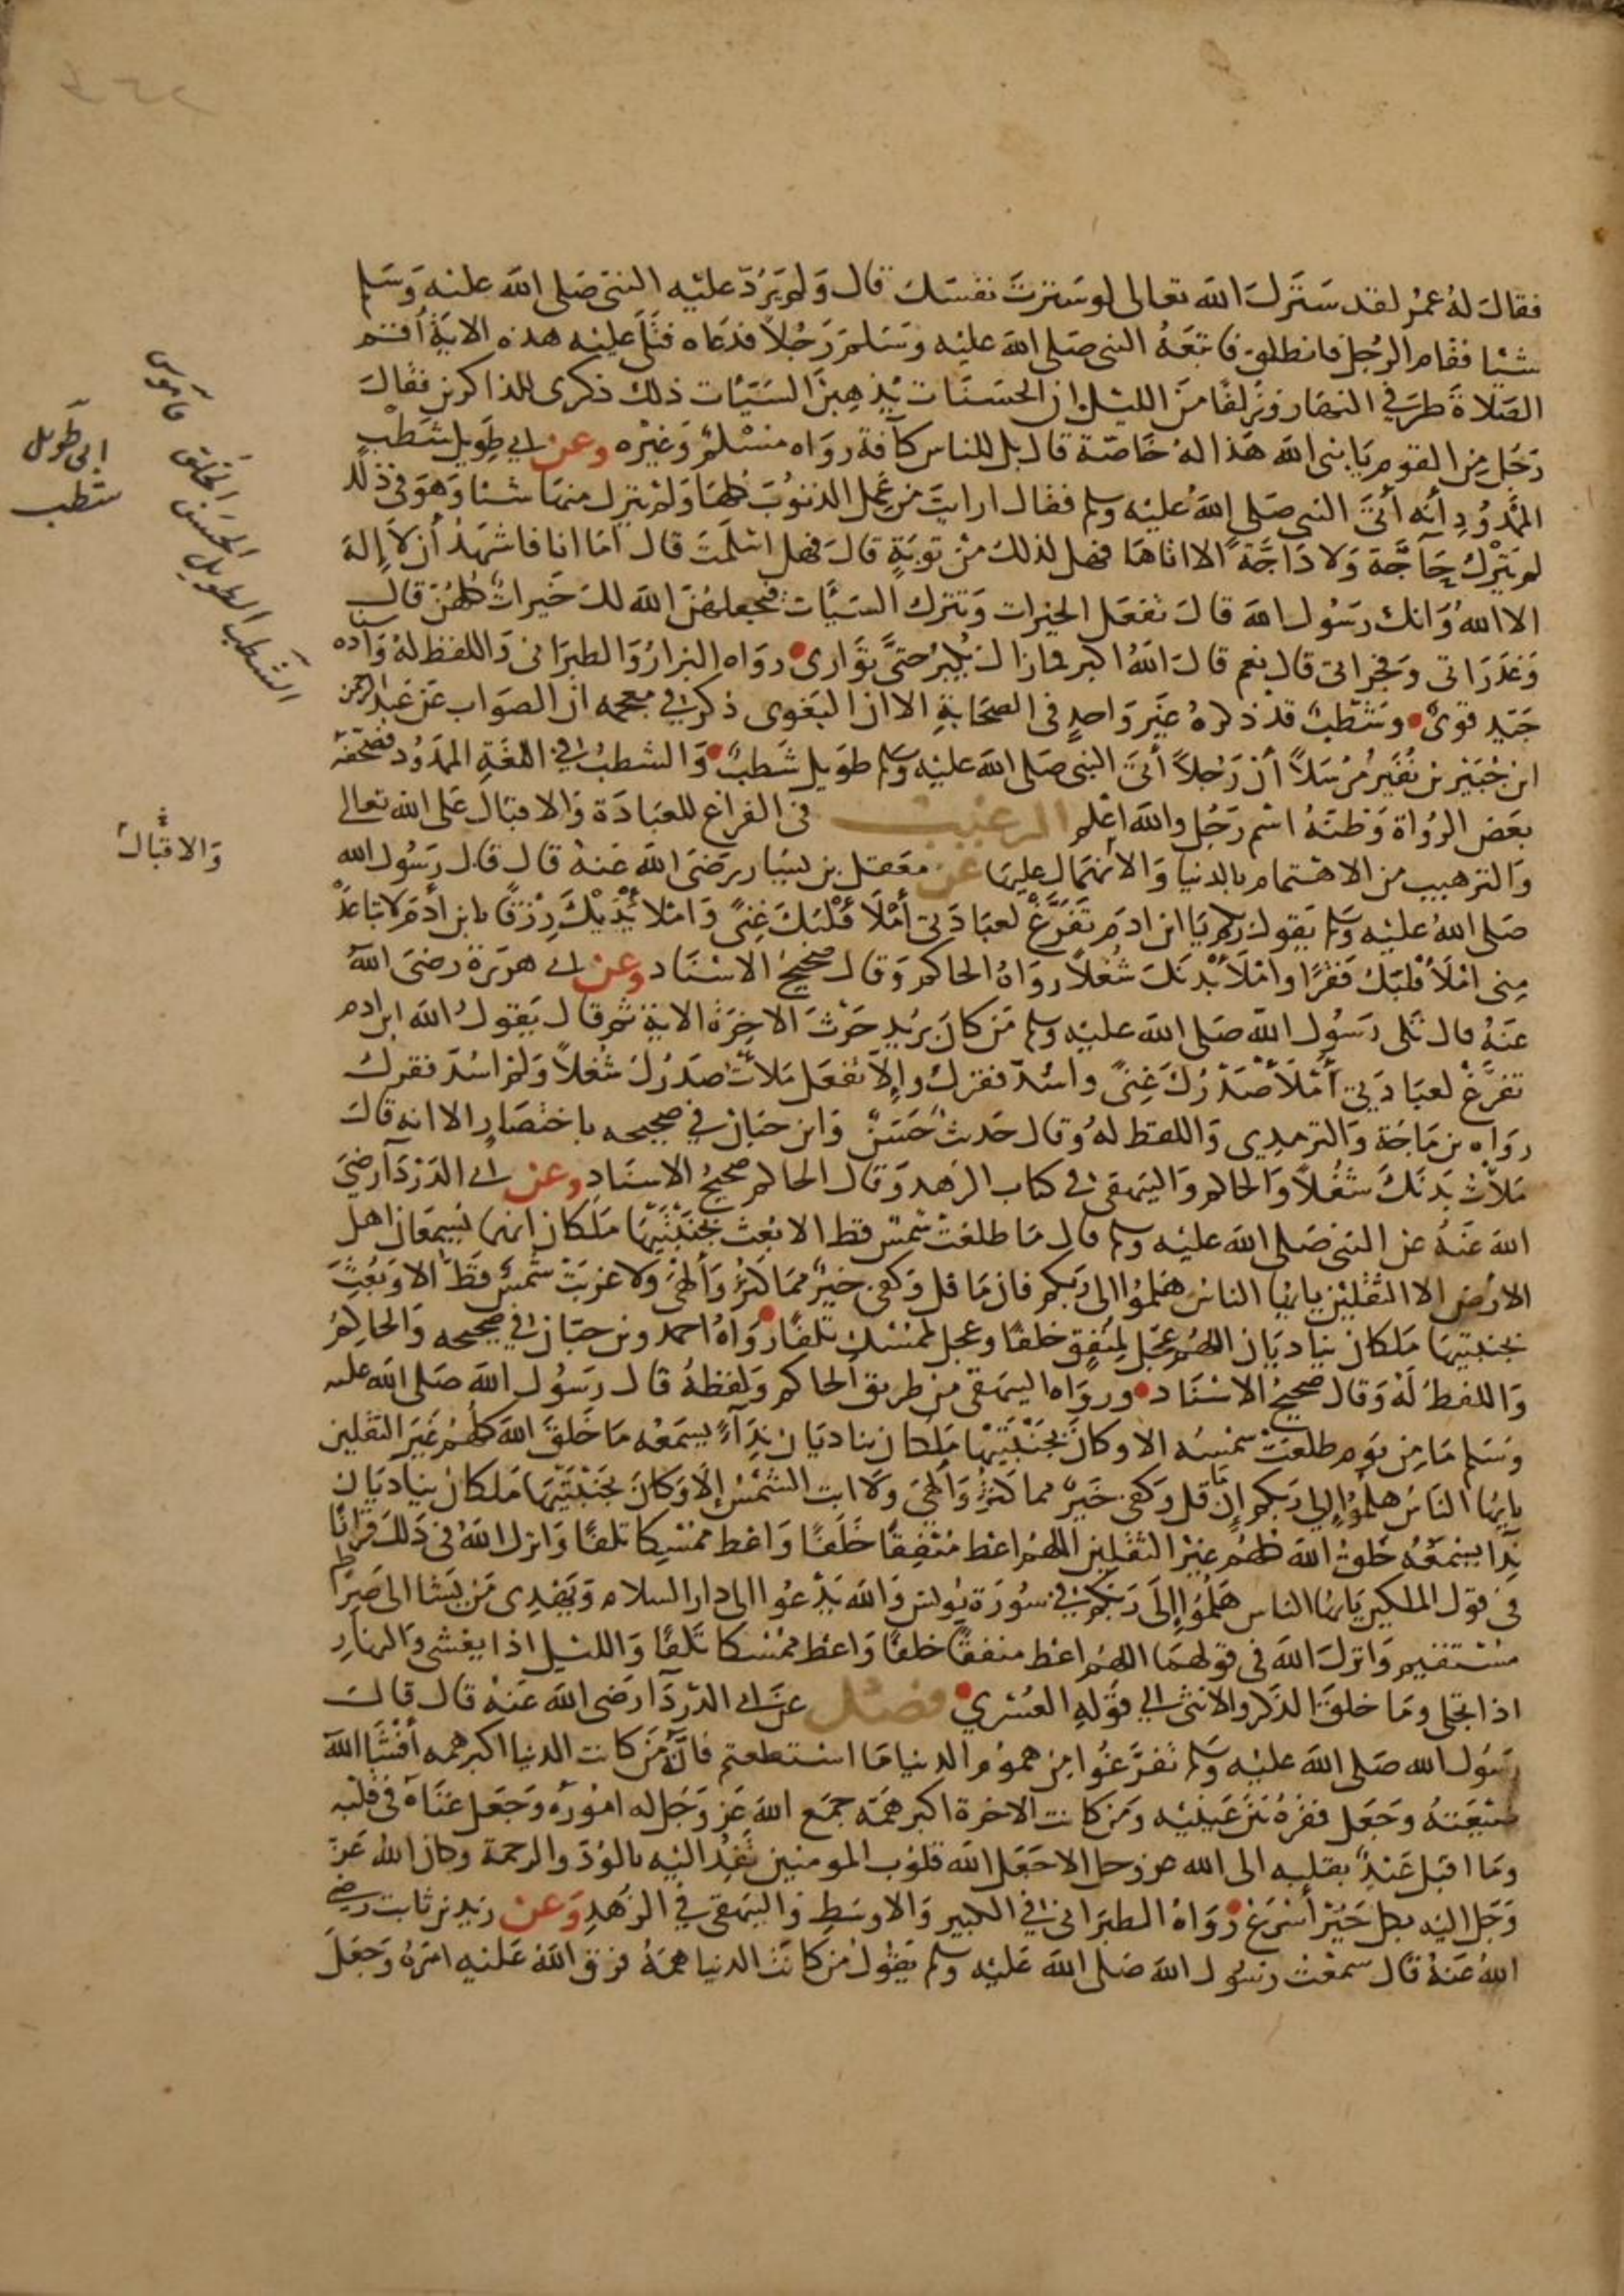 فقال له عمر لقد سترك الله تعالى لو سترت نفسك قال ولم يرد عليه النبي صلى الله عليه وسلم
شيئا فقام الرجل فانطلق فاتبعه النبي صلى الله عليه وسلم رجلا فدعاه فتلى عليه هذه الاية أقم
الصلاة طرفي النهار وزلفا من الليل ان الحسنات يذهبن السيئات ذلك ذكرى للذاكرين فقال
رجل من القوم يا نبي الله هذا له خاصة قال بل للناس كافة رواه مسلم وغيره وعن ابي طويل شطب
الممدود أنه أتى النبي صلى الله عليه وسلم فقال ارايت من عمل الذنوب كلها ولم يترك منها شيئا وهو في ذلك
لم يترك حاجة ولا داجة الا اتاها فهل لذلك من توبة قال فهل اسلمت قال أما انا فاشهد أن لا إله
الا الله وانك رسول الله قال تفعل الخيرات وتترك السيئات فيجعلهن الله لك خيرات كلهن قال
وغدراتي وفجراتي قال نعم قال الله اكبر فما زال يكبر حتى توارى رواه البزار والطبراني واللفظ له واسناده
جيد قوي وشطب قد ذكره غير واحد في الصحابة الا ان البغوي ذكر في معجمه ان الصواب عن عبد الرحمن
ابن جبير بن نفير مرسلا أن رجلا أتى النبي صلى الله عليه وسلم طويل شطب والشطب في اللغة الممدود فصحفه
بعض الرواة وظنه اسم رجل والله اعلم الترغيب في الفراغ للعبادة والاقبال على الله تعالى
والترهيب من الاهتمام بالدنيا والانهمال عليها عن معقل بن يسار رضي الله عنه قال قال رسول الله
صلى الله عليه وسلم يقول ربكم يا ابن ادم تفرغ لعبادتي أملأ قلبك غنى واملأ يديك رزقا يا بن أدم لا تباعد
مني املأ قلبك فقرا واملأ بدنك شغلا رواه الحاكم وقال صحيح الاسناد وعن ابي هريرة رضي الله
عنه قال تلى رسول الله صلى الله عليه وسلم من كان يريد حرث الاخرة الاية ثم قال يقول الله ابن ادم
تفرغ لعبادتي أملأ صدرك غنى واسد فقرك وإلا تفعل ملأت صدرك شغلا ولم اسد فقرك
رواه بن ماجة والترمذي واللفظ له وقال حديث حسن وابن حبان في صحيحه باختصار الا انه قال
ملأت بدنك شغلا والحاكم والبيهقي في كتاب الزهد وقال الحاكم صحيح الاسناد وعن ابي الدرداء رضي
الله عنه عن النبي صلى الله عليه وسلم قال ما طلعت شمس قط الا بعث بجنبتيها ملكان انهما يسمعان اهل
الارض الا الثقلين يا ايها الناس هلموا الى ربكم فان ما قل وكفى خير مما كثر وألهى ولا غربت شمس قط الا وبعث
بجنبتيها ملكان يناديان اللهم عجل لمنفق خلفا وعجل لممسك تلفا رواه احمد وبن حبان في صحيحه والحاكم
واللفظ له وقال صحيح الاسناد ورواه البيهقي من طريق الحاكم ولفظه قال رسول الله صلى الله عليه
وسلم ما من يوم طلعت شمسه الا وكان بجنبتيها ملكان يناديان نداء يسمعه ما خلق الله كلهم غير الثقلين
يا يها الناس هلموا إلى ربكم إن ما قل وكفى خير مما كثر وألهى ولا ابت الشمس إلا وكان بجنبتيها ملكان يناديان
ندا يسمعه خلق الله كلهم غير الثقلين اللهم اعط منفقا خلفا واعط ممسكا تلفا وانزل الله في ذلك قرانا
في قول الملكين يا يها الناس هلموا إلى ربكم في سورة يونس والله يدعوا الى دار السلام ويهدي من يشا الى صراط
مستقيم وانزل الله في قولهما اللهم اعط منفقا خلفا واعط ممسكا تلفا والليل اذا يغشى والنهار
اذا تجلى وما خلق الذكر والانثى الى قوله العسري فصل عن ابي الدرداء رضي الله عنه قال قال
رسول الله صلى الله عليه وسلم تفرغوا من هموم الدنيا ما استطعتم فانه من كانت الدنيا اكبر همه أفشا الله
ضيعته وجعل فقره بين عينيه ومن كانت الاخرة اكبر همه جمع الله عز وجل له اموره وجعل غناه في قلبه
وما اقبل عبد بقلبه الى الله عز وجل الا جعل الله قلوب المومنين تفد اليه بالود والرحمة وكان الله عز
وجل اليه بكل خير أسرع رواه الطبراني في الكبير والاوسط والبيهقي في الزهد وعن زيد بن ثابت رضي
الله عنه قال سمعت رسول الله صلى الله عليه وسلم يقول من كانت الدنيا همه فرق الله عليه امره وجعل
ابي طويل
شطب
الشطب الطويل الحسن الخلق قاموس
والاقبال